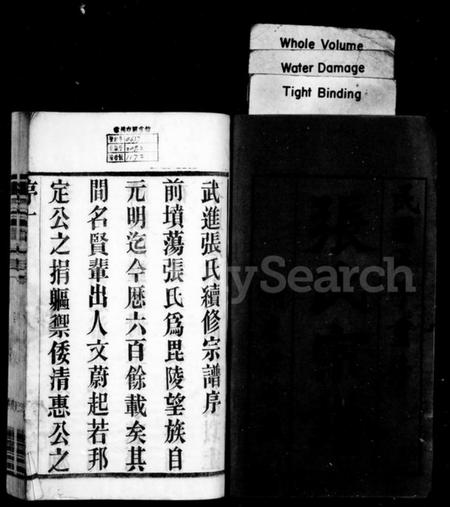 Whole Volume
Water Damage
Tight Binding
武進張氏續修宗譜序
前墳蕩張氏爲毘陵望族自
元明迄今歷六百餘載矣其
間名賢輩出人文蔚起若邦
定公之捐軀禦倭清惠公之
序一
Search